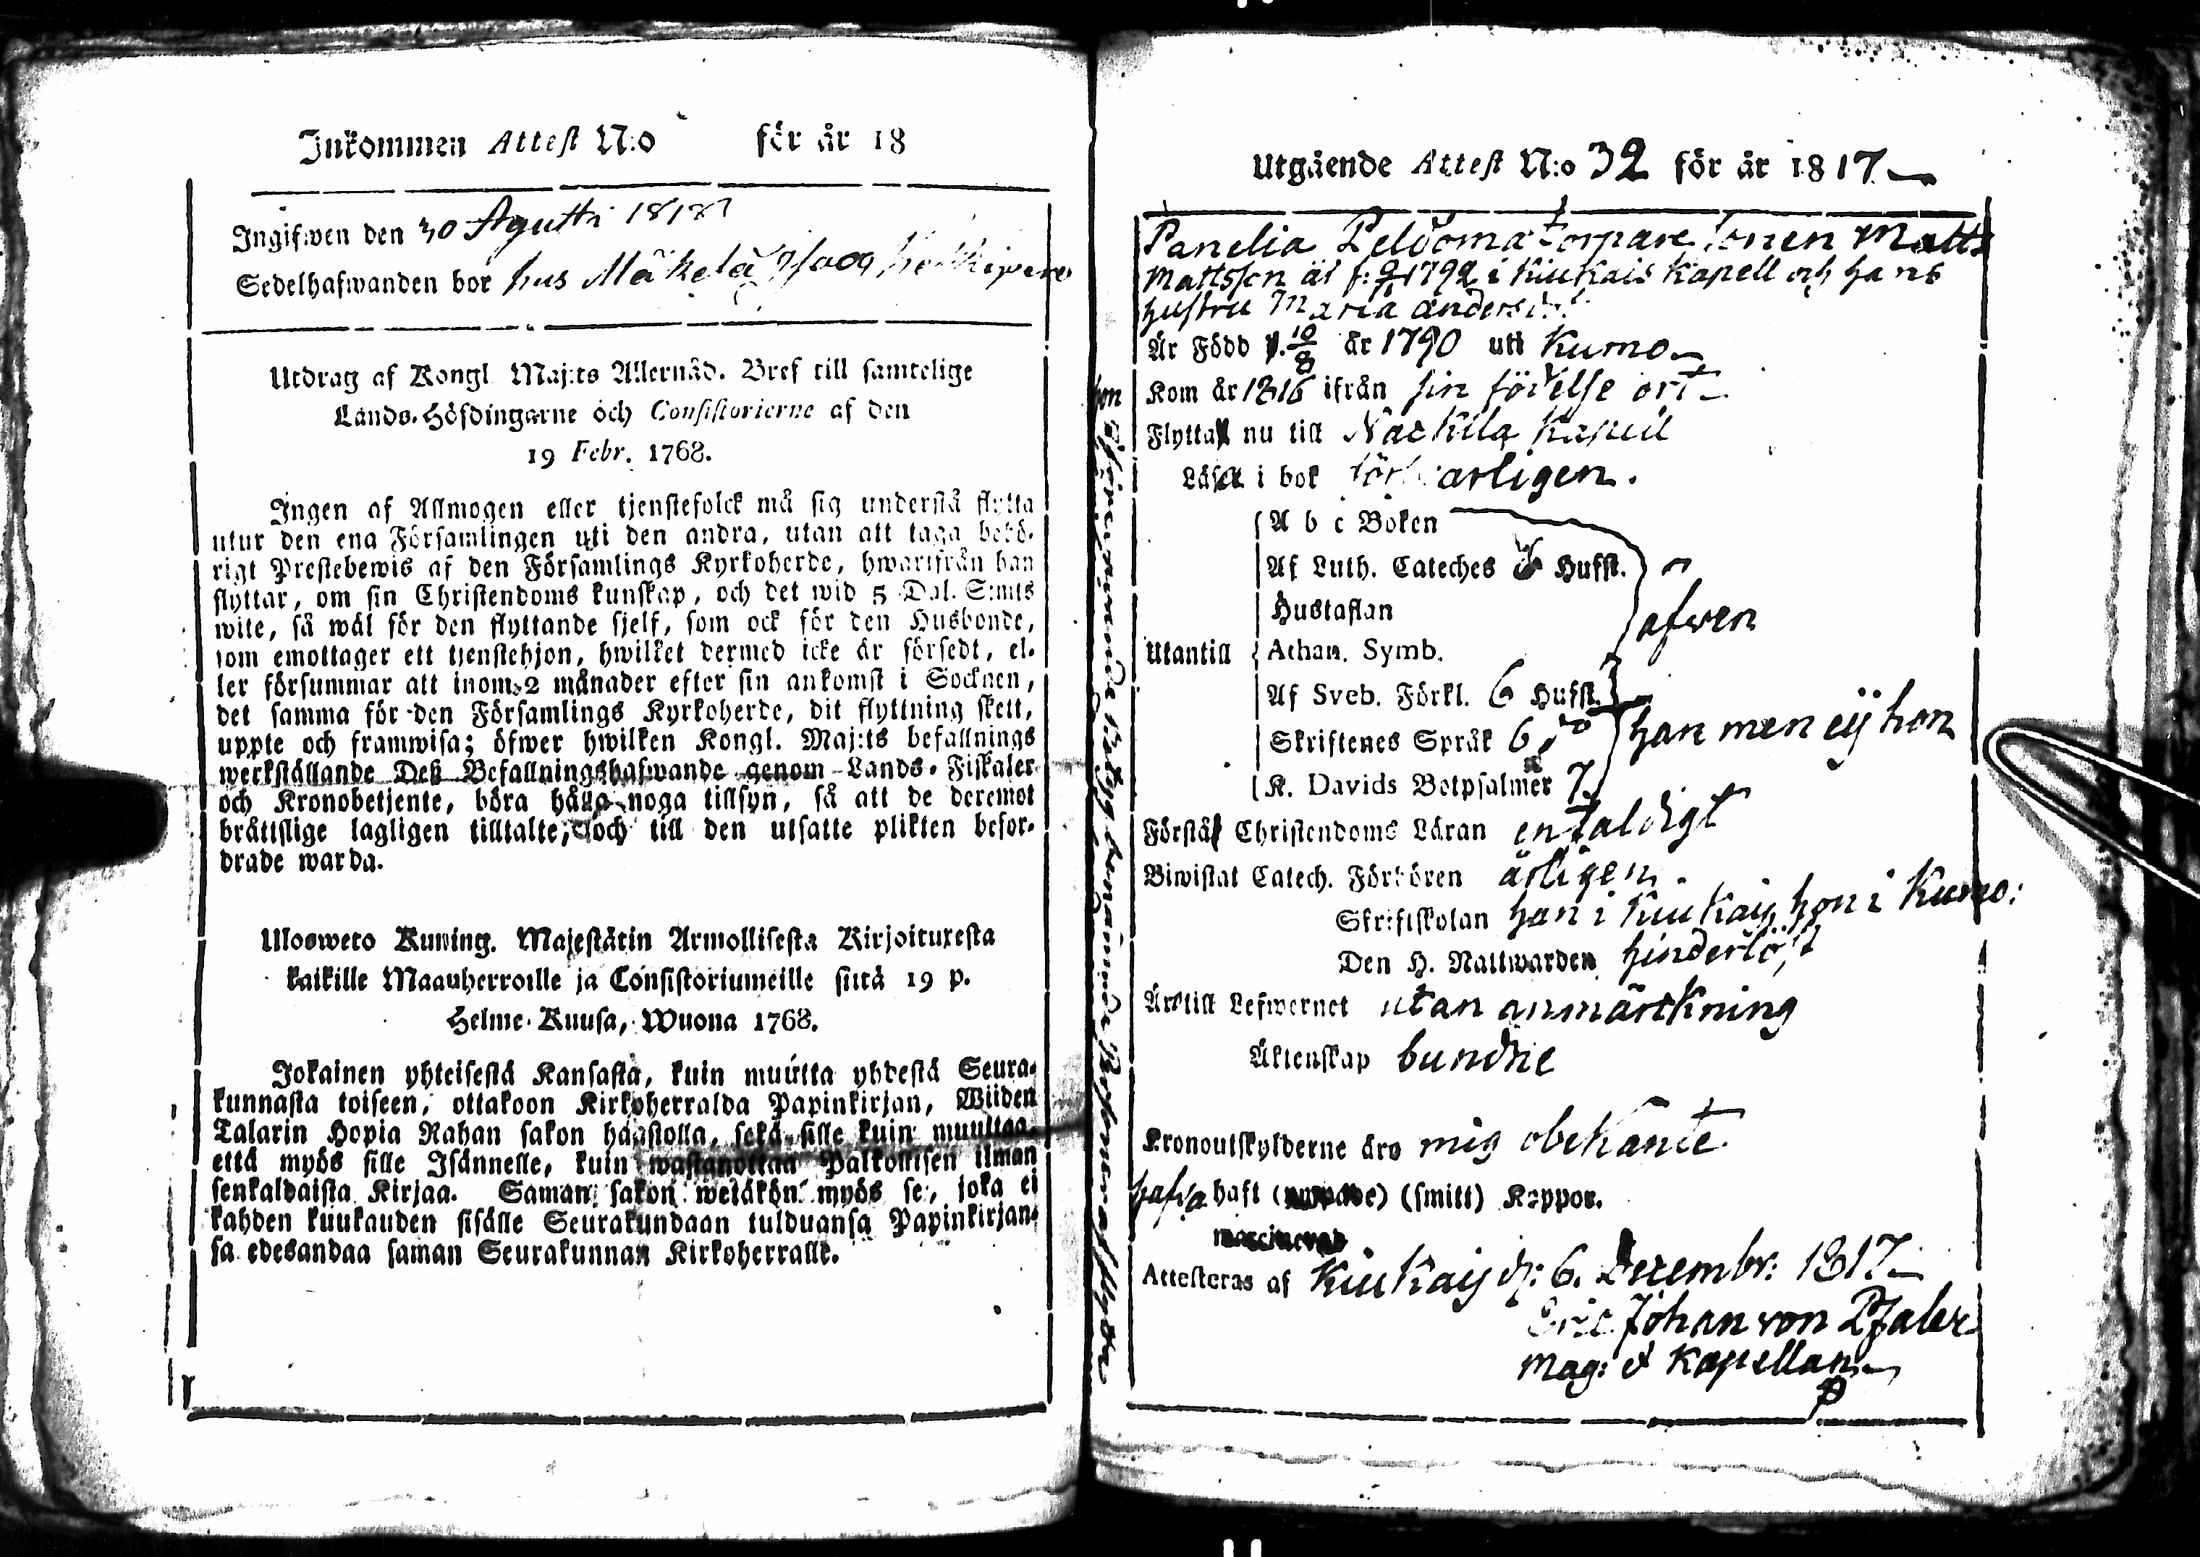 Inkommen Attest N:o för år 18
Ingifwen den 30 Agusti 1818
Sedelhafwanden bor hus Mäkelä
Utdrag af Kongl Maj:ts Allernåd. Bref till samtelige
Lands-Höfdingarne och Consistorierne af den
19 Febr. 1768.
Ingen af Allmogen eller tjenstefolck må sig understå flytta
utur den ena Församlingen uti den andra, utan att taga behö-
rigt Prestebewis af den Församlings Kyrkoherde, hwarifrån han
flyttar, om sin Christendoms kunskap, och det wid 5 Dal. S:mts
wite, så wäl för den flyttande sjelf, som ock för den Husbonde,
som emottager ett tjenstehjon, hwilket dermed icke är försedt, el-
ler försummar att inom 2 månader efter sin ankomst i Socknen,
det samma för den Församlings Kyrkoherde, dit flyttning skett,
uppte och framwisa; öfwer hwilken Kongl. Maj:ts befallnings
werkställande Deß Befallningshafwande genom Lands-Fiskaler
och Kronobetjente, böra hålla noga tillsyn, så att de deremot
bråttslige lagligen tilltalte, och till den utsatte plikten befor-
drade warda.
Ulosweto Kuning. Majestätin Armollisesta Kirjoituxesta
kaikille Maauherroille ja Consistoriumeille siitä 19 p.
Helme-Kuusa, Wuona 1768.
Jokainen yhteisestä Kansasta, kuin muutta yhdestä Seura-
kunnasta toiseen, ottakoon Kirkoherralda Papinkirjan, Wiiden
Talarin Hopia Rahan sakon haastolla, sekä sille kuin muuttaa,
että myös sille Isännelle, kuin wastanottaa Palkollisen ilman
senkaldaista Kirjaa. Saman sakon wetäkön myös se, joka ei
kahden kuukauden sisälle Seurakundaan tulduansa Papinkirjan-
sa edesandaa saman Seurakunnan Kirkoherralle.
Utgående Attest N:o 32 för år 1817
Panelia Peldoma torpare sonen Matts
Mattsson är f: 1792 i Kiukais Kapell och hans
hustru Maria Anders
Är Född d. 10/8 år 1790 uti Kumo
Kom år 1816 ifrån sin födelse ort
Flytta nu till Nackila Kapell
Läsa i bok försvarligen.
A b c Boken
Af Luth. Cateches Hufst.
Hustaflan
afwen
Utantill Athan. Symb.
Af Sveb. Förkl. 6 Hufst.
Skriftenes Språk 6 han men eij hon
K. Davids Botpsalmer 7.
Förstå Christendoms Läran enfaldigt
Biwistat Catech. Förhören årligen.
Skriftskolan han i Kiukais, hon i Kumo:
Den H. Nattwarden hinderlöst
Är till Lefwernet utan anmärckning
Äktenskap bundne
Kronoutskylderne äro mig obekante.
hafva haft (smitt) Koppor.
Attesteras af Kiukais d: 6. Decembr: 1817
Eric Johan von Pfaler
Mag: & Kapellan